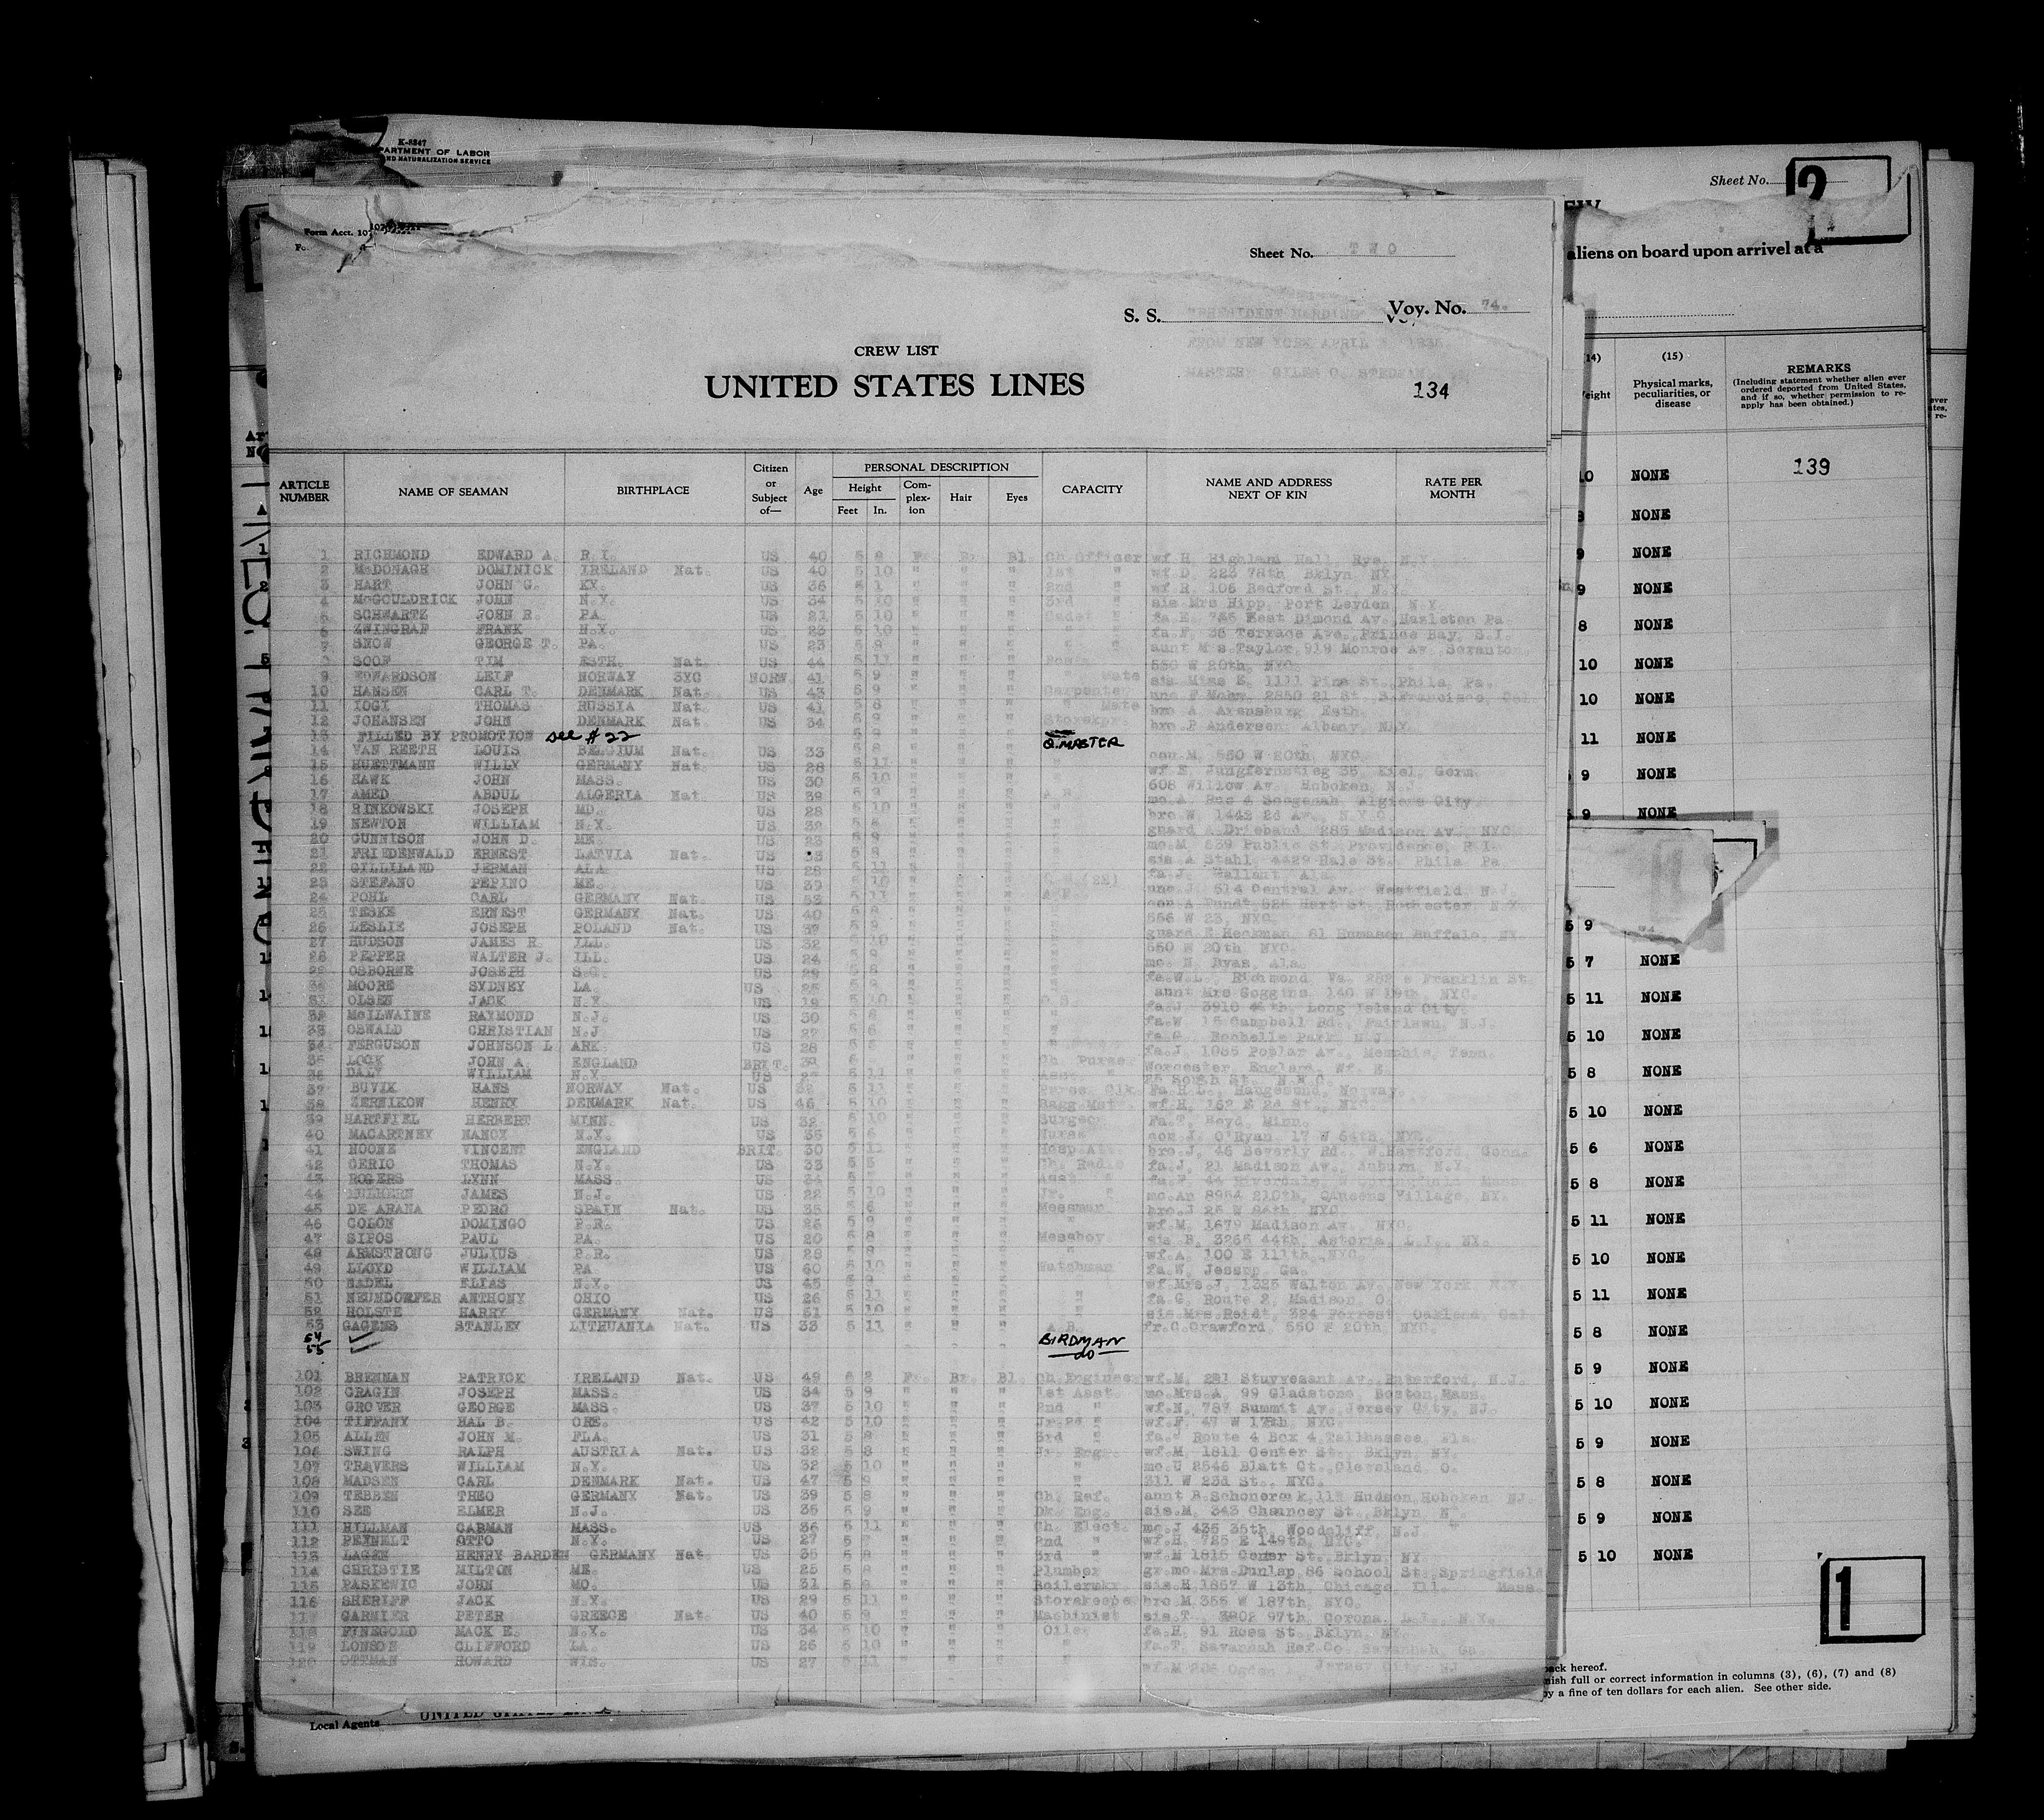 K-5247
PARTMENT OF LABOR
ND NATURALIZATION SERVICE
Sheet No.
2
Form Acct. 107
aliens on board upon arrival at a
Sheet No. TWO
S. S. PRESIDENT HARDING Voy. No. 74.
FROM NEW YORK APRIL
MASTER: GILES C. STEDMAN
CREW LIST
UNITED STATES LINES
134
(14) (15) REMARKS
Physical marks, peculiarities, or disease
(Including statement whether alien ever ordered deported from United States, and if so, whether permission to re-apply has been obtained.)
139
ARTICLE NUMBER NAME OF SEAMAN BIRTHPLACE Citizen or Subject of— Age PERSONAL DESCRIPTION Height Feet In. Com-plex-ion Hair Eyes CAPACITY NAME AND ADDRESS NEXT OF KIN RATE PER MONTH
1 RICHMOND EDWARD A. R.I. US 40 5 8 Bl. Ch Officer wf H Highland Hall Rye, N.Y.
2 McDONAGH DOMINICK IRELAND Nat. US 40 5 10 " " " 1st " wf D 223 78th Bklyn NY
3 HART JOHN G. KY. US 36 " " " 2nd " wf R 106 Bedford St., N.Y.
4 McGOULDRICK JOHN N.Y. US 34 5 10 " " " 3rd " sis Mrs Hipp, Port Leyden, N.Y.
5 SCHWARTZ JOHN R. PA. US 21 5 10 " " " Cadet fa E, 755 East Dimond Av. Hazleton Pa
6 ZWINGRAF FRANK N.Y. US 23 5 10 " " " fa F, 35 Terrace Ave. Prince Bay, S.I.
7 SNOW GEORGE T. PA. US 23 5 9 " " " aunt Mrs Taylor, 919 Monroe Av. Scranton,
8 SOOF TIM ESTH. Nat. US 44 5 11 " " " 550 W 20th, NYC.
9 EDWARDSON LEIF NORWAY 3YG NORW. 41 5 9 " " " Mate sis Miss E. 1111 Pine St. Phila, Pa.
10 HANSEN CARL T. DENMARK Nat. US 43 5 9 " " " Carpenter unc F Mohr, 2850 21 St. S Francisco, Cal
11 IOGI THOMAS RUSSIA Nat. US 41 5 8 " " " " Mate bro A Arensburg Esth.
12 JOHANSEN JOHN DENMARK Nat. US 34 5 9 " " " Storekpr. bro P Andersen, Albany, N.Y.
13 FILLED BY PROMOTION see # 22 5 9 " " "
14 VAN REETH LOUIS BELGIUM Nat. US 33 5 8 " " " Q.MASTER M. 550 W 20th, NYC.
15 HUETTMANN WILLY GERMANY Nat. US 28 5 11 " " " " wf E, Jungfernstieg 35, Kiel, Germ.
16 HAWK JOHN MASS. US 30 5 10 " " " " 608 Willow Av. Hoboken, N.J.
17 AMED ABDUL ALGERIA Nat US 39 5 9 " " " A.B. mo.A. Algiers City
18 RINKOWSKI JOSEPH MD. US 28 5 10 " " " " bro W, 1442 2d Av., N.Y.C.
19 NEWTON WILLIAM N.Y. US 32 " " " guard A Drieband, 285 Madison Av. NYC
20 GUNNISON JOHN D. ME. US 23 5 9 " " " mo M 839 Public St. Providence, R I.
21 FRIEDENWALD ERNEST LATVIA Nat. US 33 5 8 " " " sis A Stahl 4429 Hale St. Phila Pa
22 GILLILAND JERMAN ALA. US 28 5 11 " " " fa J, Gallant, Ala.
23 STEFANO PEPINO ME. US 39 5 10 " " " unc J. 514 Central Av. Westfield, N.J.
24 POHL CARL GERMANY Nat. US 53 5 11 " " " A.B. 525 Hart St. Rochester, N.Y.
25 TESKE ERNEST GERMANY Nat. US 40 5 8 " " " 556 W 23, NYC.
26 LESLIE JOSEPH POLAND Nat. US 37 5 9 " " " guard E Heckman, 81 Humason Buffalo, NY.
27 HUDSON JAMES R. ILL. US 32 5 10 " " " 550 W 20th, NYC.
28 PEPPER WALTER J. ILL. US 24 5 9 " " " mo. Ala.
29 OSBORNE JOSEPH S.C. US 29 5 8 " " " fa.W.L. Richmond Va. Franklin St.
30 MOORE SYDNEY LA. US 25 5 9 " " " aunt Mrs Goggins 140 W 19th, NYC.
31 OLSEN JACK N.Y. US 19 5 10 " " " O.S. fa.J. 3910 Long Island City.
32 McILWAINE RAYMOND N.J. US 30 5 8 " " " " fa.W 15 Campbell Rd., Fairlawn, N.J.
33 OSWALD CHRISTIAN N.J US 27 5 6 " " " " fa.G. Rochelle Park N.J.
34 FERGUSON JOHNSON L ARK. US 28 5 " " " " fa.J, 1085 Poplar Av., Memphis, Tenn.
35 LOCK JOHN A. ENGLAND BRIT. " " " Ch Purse. Worcester, England, Wf. E.
36 DALY WILLIAM N.Y. US 5 11 " " " Asst " 25 South St.
37 BUVIK HANS NORWAY Nat. US 5 11 " " " Purse. Clk. Fa.H.L. Haugesund, Norway.
38 ZERNIKOW HENRY DENMARK Nat. US 46 5 10 " " " Bagg Mst. wf.H, 162 E 2d St., NYC.
39 HARTFIEL HERBERT MINN. US 32 5 10 " " " Surgeon Fa.T. Boyd, Minn.
40 MACARTNEY NANCY N.Y. US 35 5 6 " " " Nurse J. O'Ryan, 17 W 64th, NYC.
41 NOONE VINCENT ENGLAND BRIT. 30 5 " " " Hosp.Att. bro.J, 46 Beverly Rd., W.Hartford, Conn.
42 CERIO THOMAS N.Y. US 33 5 5 " " " Ch. Radio fa.J, 21 Madison Av., Auburn, N.Y.
43 ROGERS LYNN MASS. US 34 5 " " " Asst " fa.F. 44 Riverdale, Mass
44 MULHERN JAMES N.J. US 22 5 10 " " " Jr. " mo.An 8954 210th, Queens Village, NY.
45 DE ARANA PEDRO SPAIN Nat. US 35 5 6 " " " Messman bro.J 25 W 84th, NYC.
46 COLON DOMINGO P.R. US 26 5 9 " " " " wf.M, 1679 Madison Av., NYC.
47 SIPOS PAUL PA. US 20 5 8 " " " Messboy sis.B, 3266 44th, Astoria, L.I., NY.
48 ARMSTRONG JULIUS P.R. US 28 5 8 " " " " wf.A, 100 E 111th, NYC.
49 LLOYD WILLIAM PA US 60 5 10 " " " Watchman fa.W, Jessup, Ga.
50 NADEL ELIAS N.Y. US 45 5 9 " " " " wf Mrs.J, 1325 Walton Av. New York N.Y.
51 NEUNDORFER ANTHONY OHIO US 26 5 11 " " " " fa.G, Route 2, Madison, O.
52 HOLSTE HARRY GERMANY Nat. US 51 5 10 " " " " sis.Mrs.Reidt, 324 Forrest, Oakland, Cal.
53 GAGENS STANLEY LITHUANIA Nat. US 33 5 11 " " " A.B. fr.C.Crawford, 550 W 20th, NYC.
54 BIRDMAN
55 do
101 BRENNAN PATRICK IRELAND Nat. US 49 5 8 Fr. Br. Bl. Ch.Engineer wf.M, 281 Stuyvesant Av. Rutherford, N.J.
102 CRAGIN JOSEPH MASS. US 34 5 9 " " " 1st Asst. mo.Mrs.A, 99 Gladstone, Boston,Mass.
103 GROVER GEORGE MASS. US 37 5 10 " " " 2nd " wf.N, 787 Summit Av. Jersey City, NJ.
104 TIFFANY HAL B. ORE. US 42 5 10 " " " Jr 2d " wf.F, 47 W 17th, NYC.
105 ALLEN JOHN M. FLA. US 31 5 8 " " " 3rd " fa.J Route 4 Box 4,Tallhassee, Fla.
106 SWING RALPH AUSTRIA Nat. US 32 5 8 " " " Jr. Engr. wf.M 1811 Center St., Bklyn, NY.
107 TRAVERS WILLIAM N.Y. US 32 5 10 " " " " mo.U 2546 Blatt Ct.,Cleveland, O.
108 MADSEN CARL DENMARK Nat. US 47 5 9 " " " " 311 W 23d St., NYC.
109 TEBBEN THEO GERMANY Nat. US 39 5 8 " " " Ch. Ref. aunt B.Schonorock,111 Hudson,Hoboken NJ.
110 SEE ELMER N.J. US 35 5 9 " " " Dk. Eng. sis.M, 343 Chauncey St., Bklyn N
111 HILLMAN CARMAN MASS. US 36 5 11 " " " Ch. Elect. mo.J 435 35th, Woodcliff, N.J.
112 PEYNELT OTTO N.Y. US 27 5 8 " " " 2nd " wf.H, 725 E 149th, NYC.
113 LAGEN HENRY BARDEN GERMANY Nat US 35 5 8 " " " 3rd " wf.M 1815 St., Bklyn, NY
114 CHRISTIE MILTON ME. US 25 5 8 " " " Plumber gr.mo.Mrs.Dunlap,86 School St.,Springfield Mass.
115 PASKEWIC JOHN MO. US 31 5 9 " " " Boilermkr. sis.H,1857 W 13th, Chicago, Ill.
116 SHERIFF JACK N.Y. US 29 5 11 " " " Storekeeper bro M,355 W 187th, NYC.
117 GARNIER PETER GREECE Nat. US 40 5 9 " " " Machinist sis.T., 3802 97th, Corona, L.I., N.Y.
118 FINEGOLD MACK E. N.Y. US 34 5 10 " " " Oiler fa.H, 91 Ross St., Bklyn, NY.
119 LONSON CLIFFORD LA. US 26 5 10 " " " " fa.T. Savannah Ref.Co. Savannah, Ga.
120 OTTMAN HOWARD WIS. US 27 5 11 " " " " wf.M 206 Ogden Jersey City NJ
10 NONE
8 NONE
9 NONE
9 NONE
8 NONE
10 NONE
10 NONE
11 NONE
9 NONE
5 9 NONE
5 9
5 7 NONE
5 11 NONE
5 10 NONE
5 8 NONE
5 10 NONE
5 6 NONE
5 8 NONE
5 11 NONE
5 10 NONE
5 11 NONE
5 8 NONE
5 9 NONE
5 10 NONE
5 9 NONE
5 8 NONE
5 9 NONE
5 10 NONE
1
back hereof.
nish full or correct information in columns (3), (6), (7) and (8)
by a fine of ten dollars for each alien. See other side.
Local Agents UNITED STATES LINES